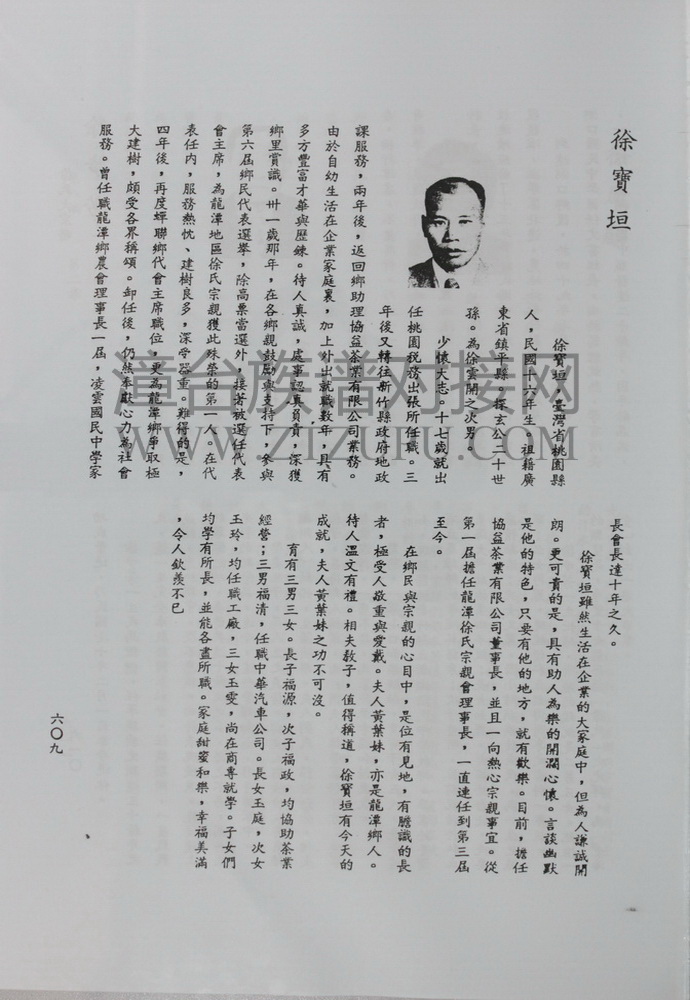 徐寶垣
徐寶垣,臺灣省桃園縣
人,民國十六年生。祖籍廣
東省鎮平縣。探玄公二十世
孫。為徐雲開之次男。
少懷大志。十七歲就出
任桃園稅務出張所任職。三
年後又轉往新竹縣政府地政
課服務,兩年後,返回鄉助理協益茶業有限公司業務。
由於自幼生活在企業家庭裏,加上外出就職數年,具有
多方豐富才華與歷鍊。待人真誠,處事認真負責,深獲
鄉里賞識。卅一歲那年,在各鄉親鼓勵與支持下,參與
第六屆鄉民代表選舉,除高票當選外,接著被選任代表
會主席,為龍潭地區徐氏宗親獲此殊榮的第一人。在代
表任內,服務熱忱、建樹良多,深受器重。難得的是,
四年後,再度蟬聯鄉代會主席職位,更為龍潭鄉爭取極
大建樹,頗受各界稱頌。卸任後,仍然奉獻心力為社會
服務。曾任職龍潭鄉農會理事長一屆,凌雲國民中學家
長會長達十年之久。
徐寶垣雖然生活在企業的大家庭中,但為人謙誠開
朗。更可貴的是,具有助人為樂的開濶心懷。言談幽默
是他的特色,只要有他的地方,就有歡樂。目前,擔任
協益茶業有限公司董事長,並且一向熱心宗親事宜。從
第一屆擔任龍潭徐氏宗親會理事長,一直連任到第三屆
至今。
在鄉民與宗親的心目中,是位有見地,有膽識的長
者,極受人敬重與愛戴。夫人黃葉妹,亦是龍潭鄉人。
待人溫文有禮。相夫教子,值得稱道,徐寶垣有今天的
成就,夫人黃葉妹之功不可沒。
育有三男三女。長子福源,次子福政,均協助茶業
經營;三男福清,任職中華汽車公司。長女玉庭,次女
玉玲,均任職工廠,三女玉雯,尚在商專就學。子女們
均學有所長,並能各盡所職。家庭甜蜜和樂,幸福美滿
,令人欽羨不已
六〇九
漳台族谱对接网
WWW.ZTZUPU.COM